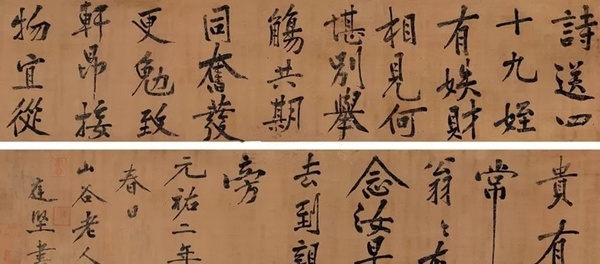 詩送四
十九姪
有娱財
相見何
堪別舉
觴共期
同奮發
更勉致
軒昂接
物宜從
貴有
常
翁〻
念汝早
去到
旁
元祐二年
春日
山谷老人
庭堅書